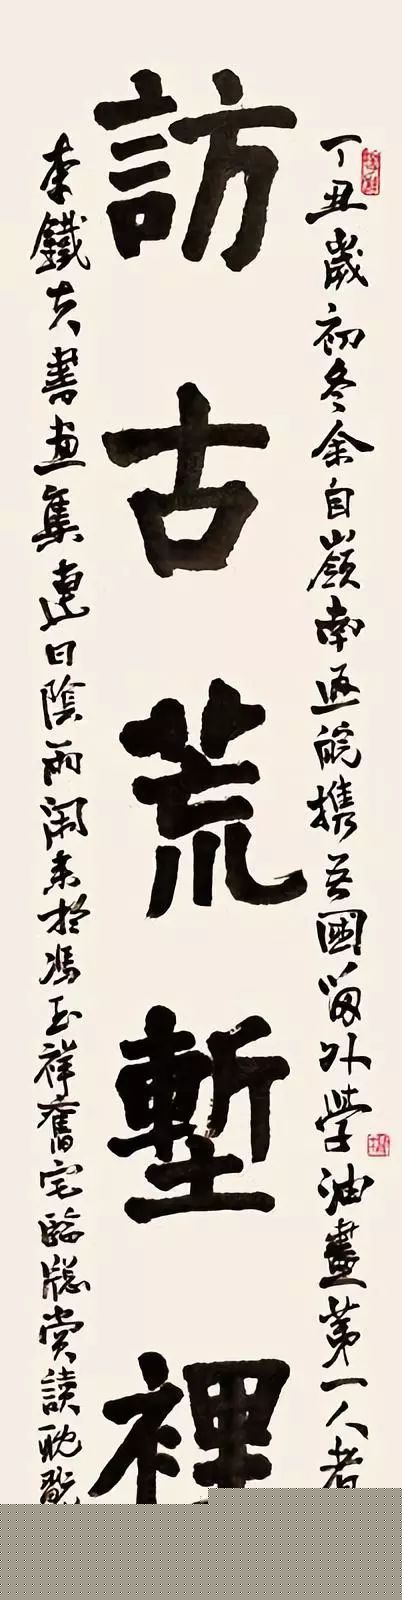 丁丑歲初冬余自嶺南返皖攜吾國留外學油畫第一人者
訪古荒塹裡
李鐵夫書畫集連日陰雨閑來於馮玉祥舊宅臨牕賞讀耽